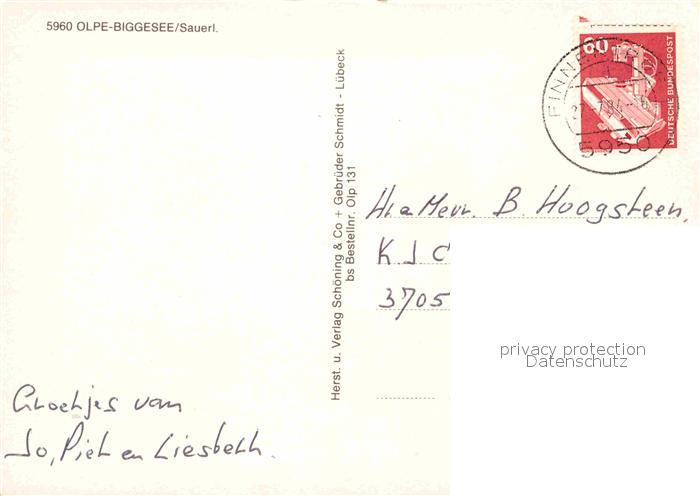 5960 OLPE-BIGGESEE/Sauerl.
Herst. u. Verlag Schöning & Co + Gebrüder Schmidt - Lübeck
bs Bestellnr. Olp 131
60
DEUTSCHE BUNDESPOST
5950
Hr. a Mevr. B. Hoogsteen,
K J C
3705
privacy protection
Datenschutz
Groetjes van
Jo, Piet en Liesbeth.